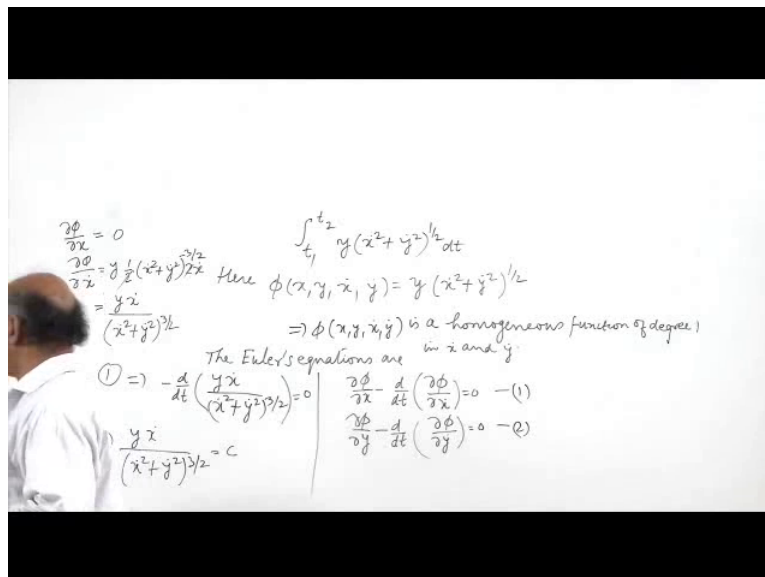 ∫_{t₁}^{t₂} y(ẋ²+ẏ²)^{1/2} dt
Here φ(x,y,ẋ,ẏ) = y(ẋ²+ẏ²)^{1/2}
⇒ φ(x,y,ẋ,ẏ) is a homogeneous function of degree 1
in ẋ and ẏ.
The Euler's equations are
∂φ/∂x − d/dt(∂φ/∂ẋ) = 0 −(1)
∂φ/∂y − d/dt(∂φ/∂ẏ) = 0 −(2)
∂φ/∂x = 0
∂φ/∂ẋ = y ½(ẋ²+ẏ²)^{-3/2} 2ẋ
= yẋ/(ẋ²+ẏ²)^{3/2}
① ⇒ −d/dt(yẋ/(ẋ²+ẏ²)^{3/2}) = 0
yẋ/(ẋ²+ẏ²)^{3/2} = C